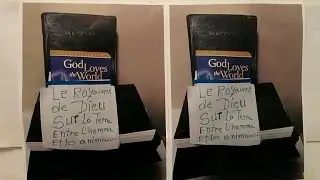 God
Loves
the World
Le Royaume
de Dieu
Sur La Terre
Entre L'homme
Et les animaux
God
Loves
the World
Le Royaume
de Dieu
Sur La Terre
Entre L'homme
Et les animaux